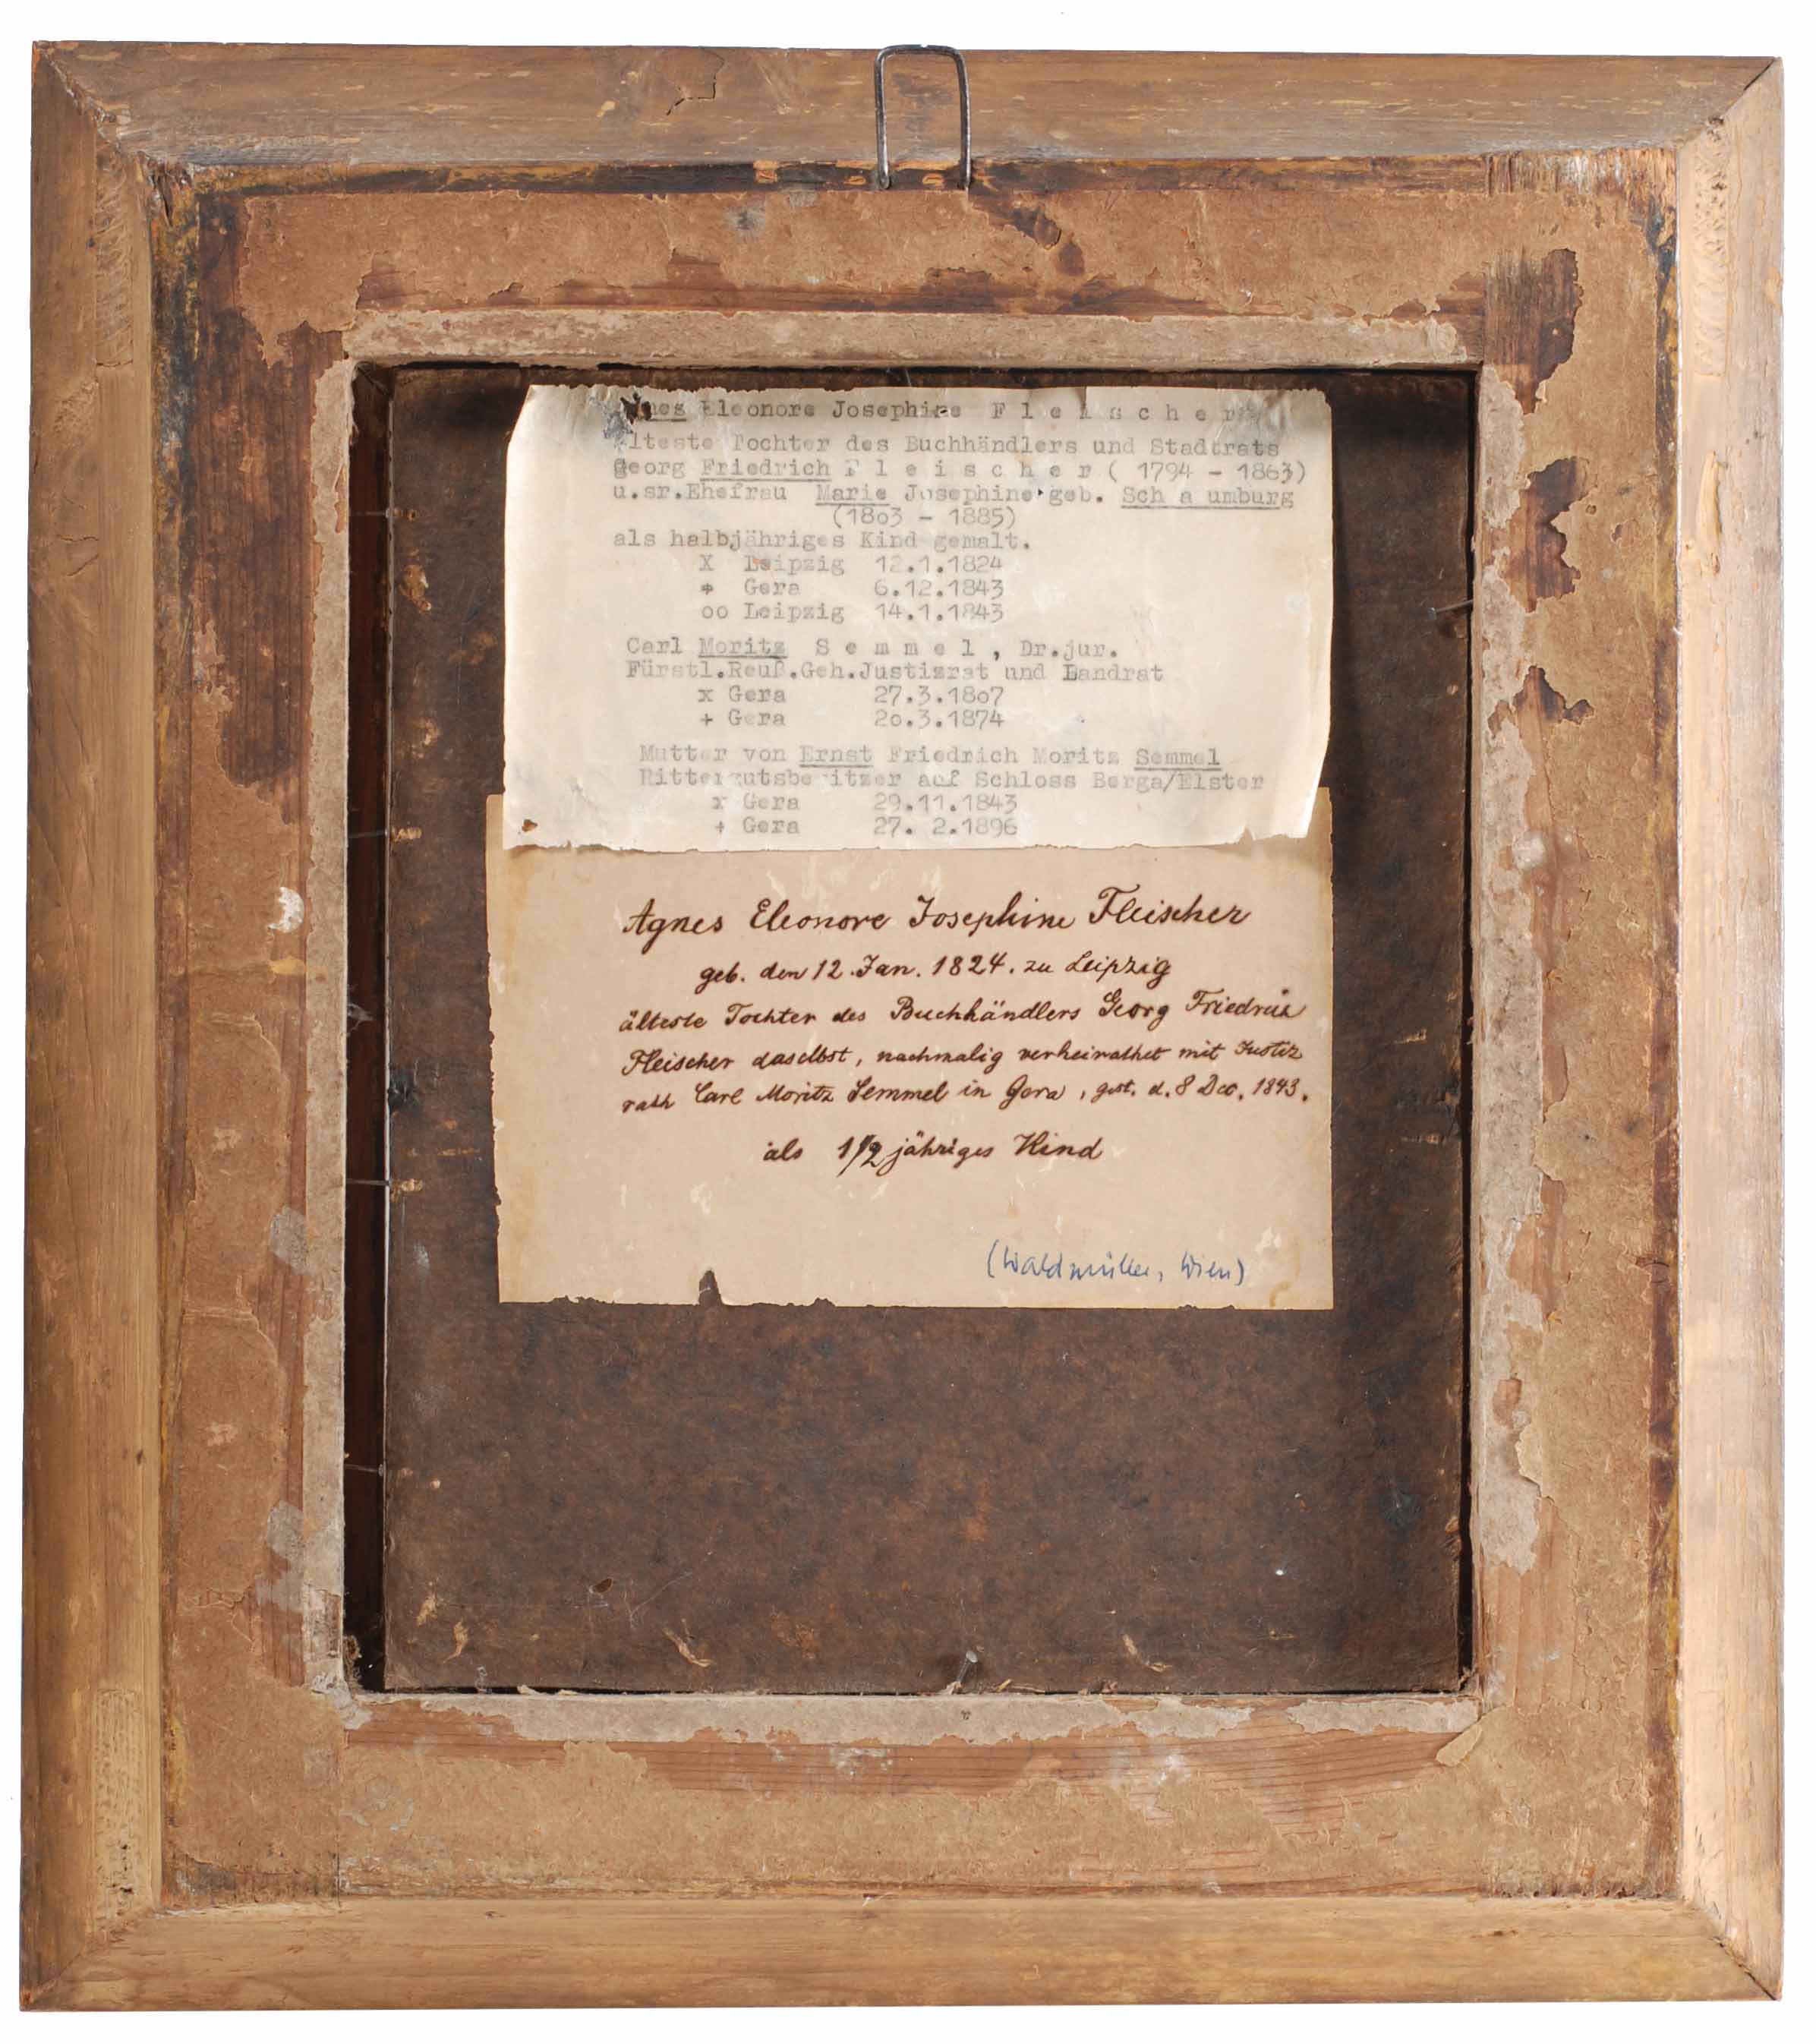 Agnes Eleonore Josephine F l e i s c h e r
älteste Tochter des Buchhändlers und Stadtrats
Georg Friedrich F l e i s c h e r ( 1794 - 1863)
u.sr.Ehefrau Marie Josephine geb. Sch a umburg
(18o3 - 1885)
als halbjähriges Kind gemalt.
X Leipzig 12.1.1824
+ Gera 6.12.1843
oo Leipzig 14.1.1843
Carl Moritz S e m m e l , Dr.jur.
Fürstl.Reuß.Geh.Justizrat und Landrat
x Gera 27.3.18o7
+ Gera 2o.3.1874
Mutter von Ernst Friedrich Moritz Semmel
Rittergutsbesitzer auf Schloss Berga/Elster
x Gera 29.11.1843
+ Gera 27. 2.1896
Agnes Eleonore Josephine Fleischer
geb. den 12. Jan. 1824. zu Leipzig
älteste Tochter des Buchhändlers Georg Friedrich
Fleischer daselbst, nachmalig verheirathet mit Justiz
rath Carl Moritz Semmel in Gera, gest. d. 8 Dec. 1843.
als 1/2 jähriges Kind
(Waldmüller, Wien)